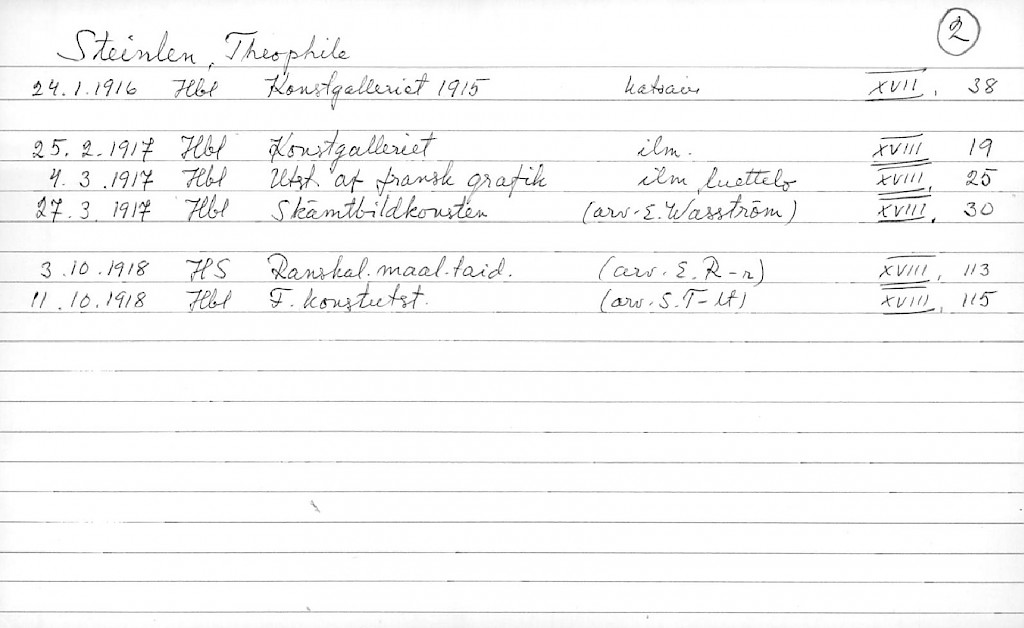 2
Steinlen, Theophile
24.1.1916 Hbl Konstgalleriet 1915 katsaus XVII, 38
25.2.1917 Hbl Konstgalleriet ilm. XVIII 19
4.3.1917 Hbl Utst. af fransk grafik ilm, luettelo XVIII, 25
27.3.1917 Hbl Skämtbildkonsten (arv. E. Wasström) XVIII, 30
3.10.1918 HS Ranskal. maal. taid. (arv. E. R-n) XVIII, 113
11.10.1918 Hbl F. konstutst. (arv. S. T-lt) XVIII, 115